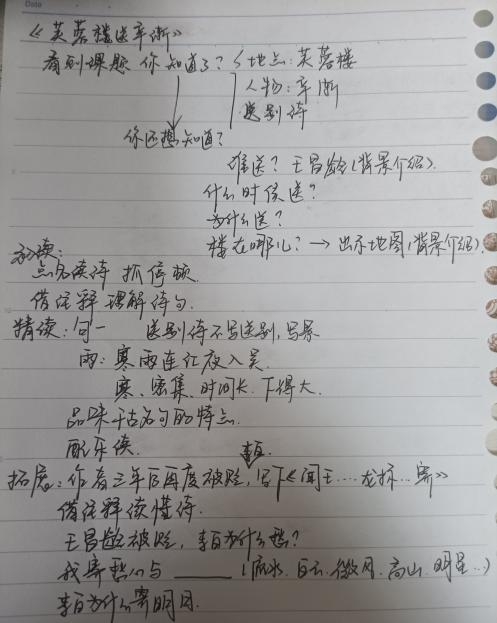 Date
《芙蓉楼送辛渐》
看到课题 你知道了？ 地点：芙蓉楼
人物：辛渐
送别诗
你还想知道？
谁送？王昌龄(背景介绍).
什么时候送？
为什么送？
楼在哪儿？→ 出示地图(背景介绍).
初读：
点名读诗 抓停顿.
借注释 理解诗句.
精读：句一 送别诗不写送别，写景
雨：寒雨连江夜入吴.
寒、密集、时间长、下得大.
品味千古名句的特点.
配乐读.
李白
拓展：作者三年后再度被贬，写下《闻王……龙标…寄》
借注释读懂诗.
王昌龄被贬，李白为什么愁？
我寄愁心与 ______ (流水、白云、微风、高山、明星…)
李白为什么寄明月.